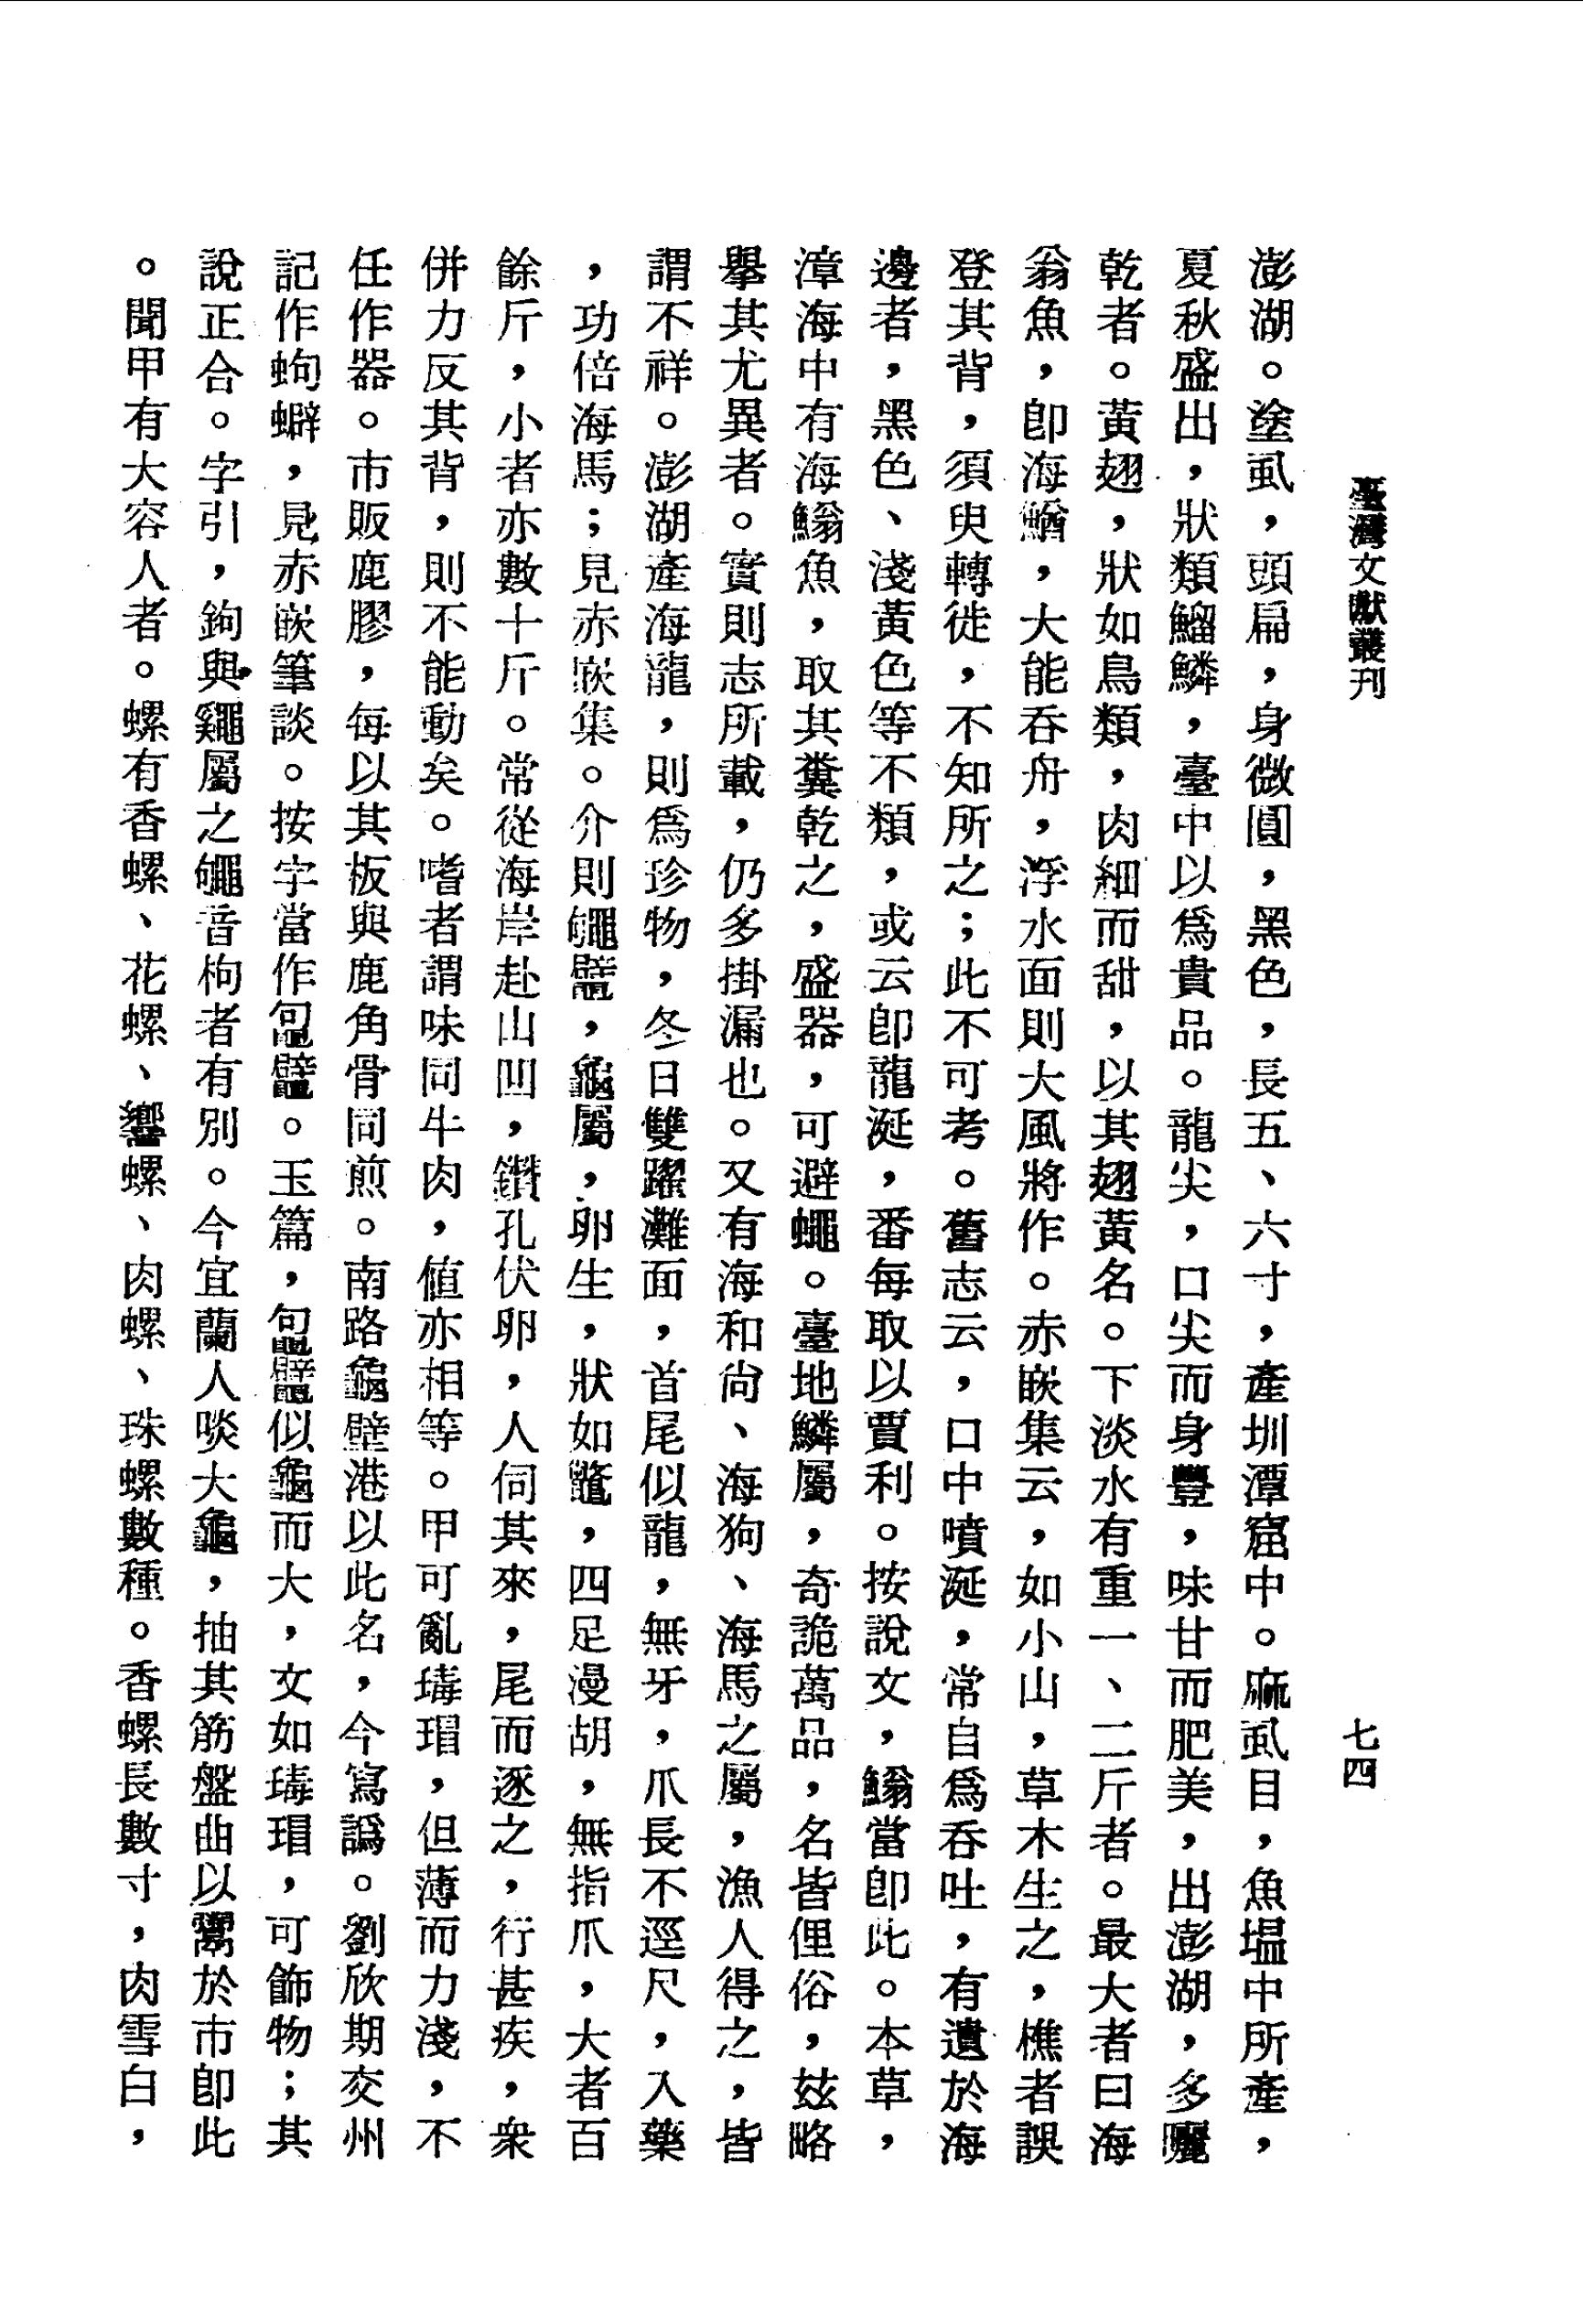 臺灣文獻叢刊
七四
澎湖。塗虱，頭扁，身微圓，黑色，長五、六寸，產圳潭窟中。麻虱目，魚塭中所產，
夏秋盛出，狀類鰡鱗，臺中以爲貴品。龍尖，口尖而身豐，味甘而肥美，出澎湖，多曬
乾者。黃翅，狀如鳥類，肉細而甜，以其翅黃名。下淡水有重一、二斤者。最大者曰海
翁魚，卽海鰌，大能吞舟，浮水面則大風將作。赤嵌集云，如小山，草木生之，樵者誤
登其背，須臾轉徙，不知所之；此不可考。舊志云，口中噴涎，常自爲吞吐，有遺於海
邊者，黑色、淺黃色等不類，或云卽龍涎，番每取以賈利。按說文，鰯當卽此。本草，
漳海中有海鰯魚，取其糞乾之，盛器，可避蠅。臺地鱗屬，奇詭萬品，名皆俚俗，玆略
擧其尤異者。實則志所載，仍多掛漏也。又有海和尙、海狗、海馬之屬，漁人得之，皆
謂不祥。澎湖產海龍，則爲珍物，冬日雙躍灘面，首尾似龍，無牙，爪長不逕尺，入藥
，功倍海馬；見赤嵌集。介則鼊，龜屬，卵生，狀如鼈，四足漫胡，無指爪，大者百
餘斤，小者亦數十斤。常從海岸赴山凹，鑽孔伏卵，人伺其來，尾而逐之，行甚疾，衆
併力反其背，則不能動矣。嗜者謂味同牛肉，値亦相等。甲可亂瑇瑁，但薄而力淺，不
任作器。市販鹿膠，每以其板與鹿角骨同煎。南路龜壁港以此名，今寫譌。劉欣期交州
記作蚼蠏，見赤嵌筆談。按字當作鼊。玉篇，鼊似龜而大，文如瑇瑁，可飾物；其
說正合。字引，鉤與屬之音枸者有別。今宜蘭人啖大龜，抽其筋盤曲以鬻於市卽此
。聞甲有大容人者。螺有香螺、花螺、響螺、肉螺、珠螺數種。香螺長數寸，肉雪白，